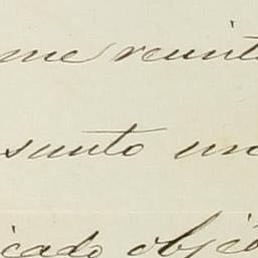 me reunit
sunto un
icado objet